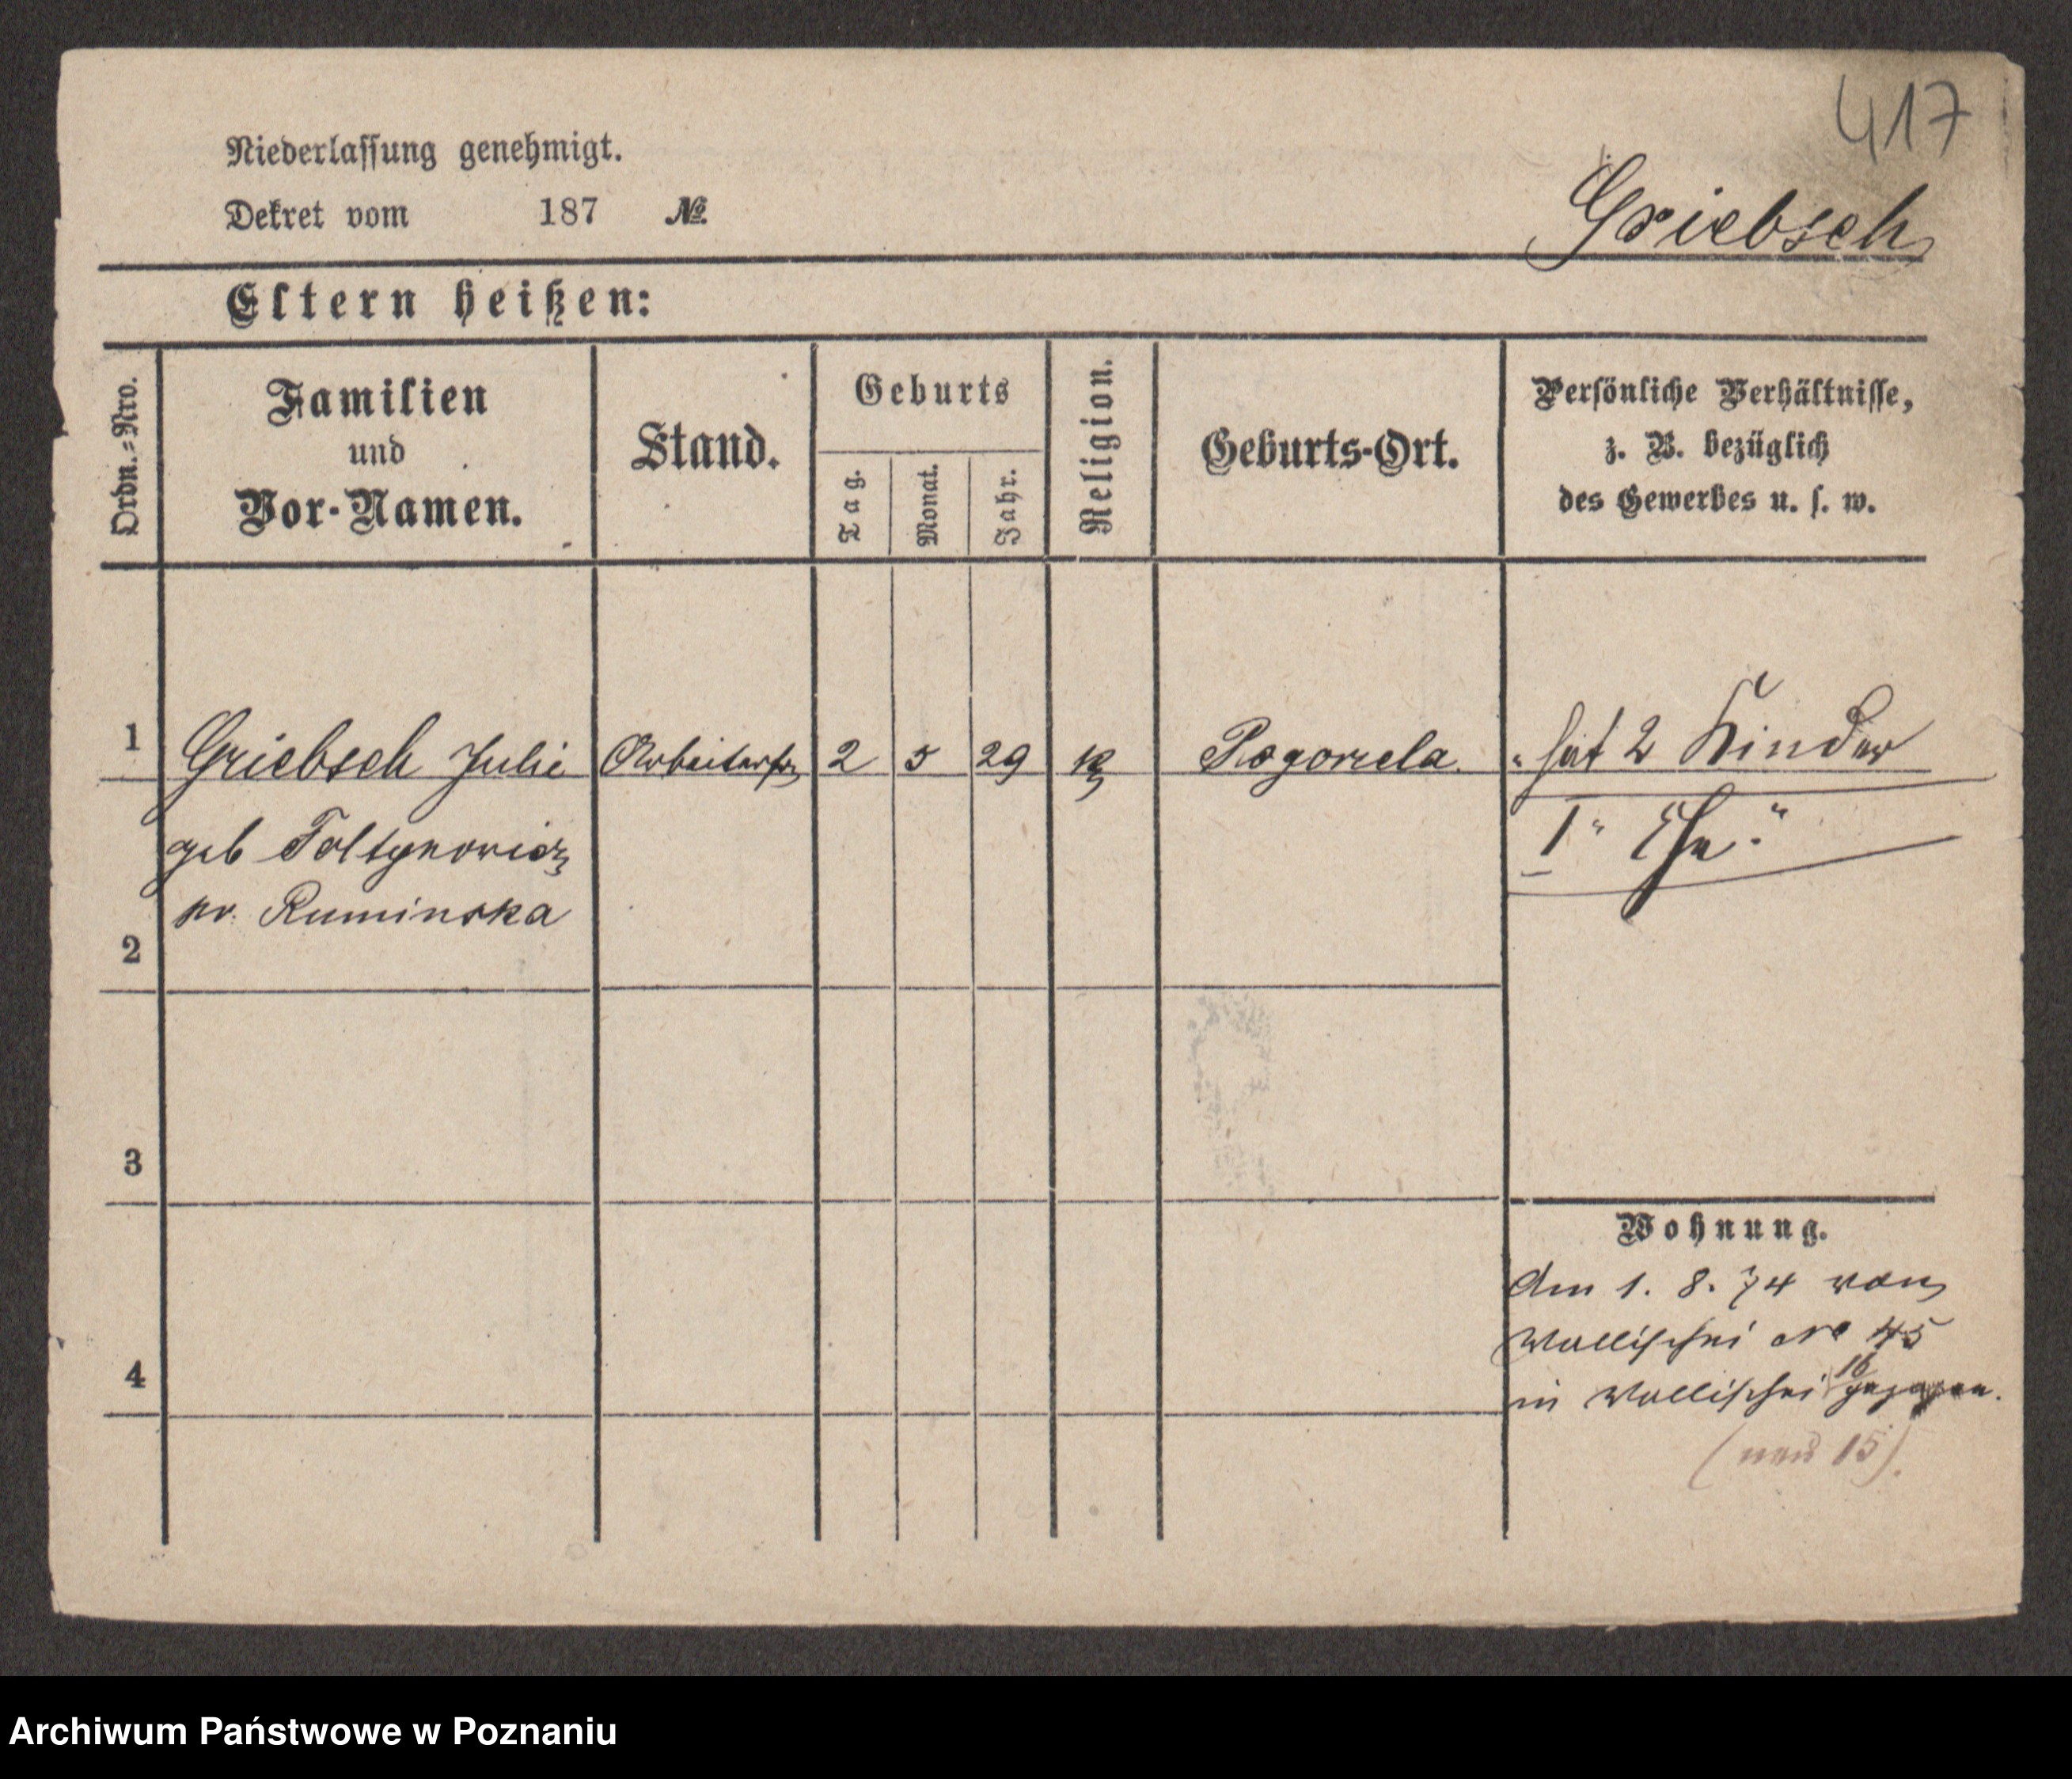 417
Niederlassung genehmigt.
Dekret vom 187 №
Griebsch
Eltern heißen:
Ordn.=Nro.
Familien
und
Vor-Namen.
Stand.
Geburts
Tag.
Monat.
Jahr.
Religion.
Geburts-Ort.
Persönliche Verhältnisse,
z. B. bezüglich
des Gewerbes u. s. w.
1 Griebsch Julie Arbeiterfr 2 5 29 k Pogorzela. hat 2 Kinder
geb Foltynowicz I" Ehe."
pv. Ruminska
2
3
4
Wohnung.
Am 1. 8. 74 von
Wallischei No 45
in Wallischei 16 gezogen.
(neu 15).
Archiwum Państwowe w Poznaniu